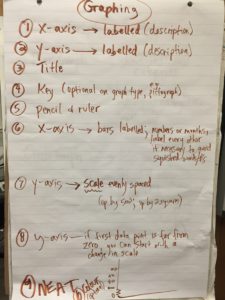 Graphing
① X-axis → labelled (description)
② Y-axis → labelled (description)
③ Title
④ Key (optional on graph type, ex. pictograph)
⑤ pencil & ruler
⑥ X-axis → bars labelled, numbers or months,
label every other
if necessary to avoid
squished
⑦ y-axis → scale evenly spaced
(up by 5
⑧ y-axis — if first data point is far from
zero, you can start with a
change in scale
⑨ NEAT